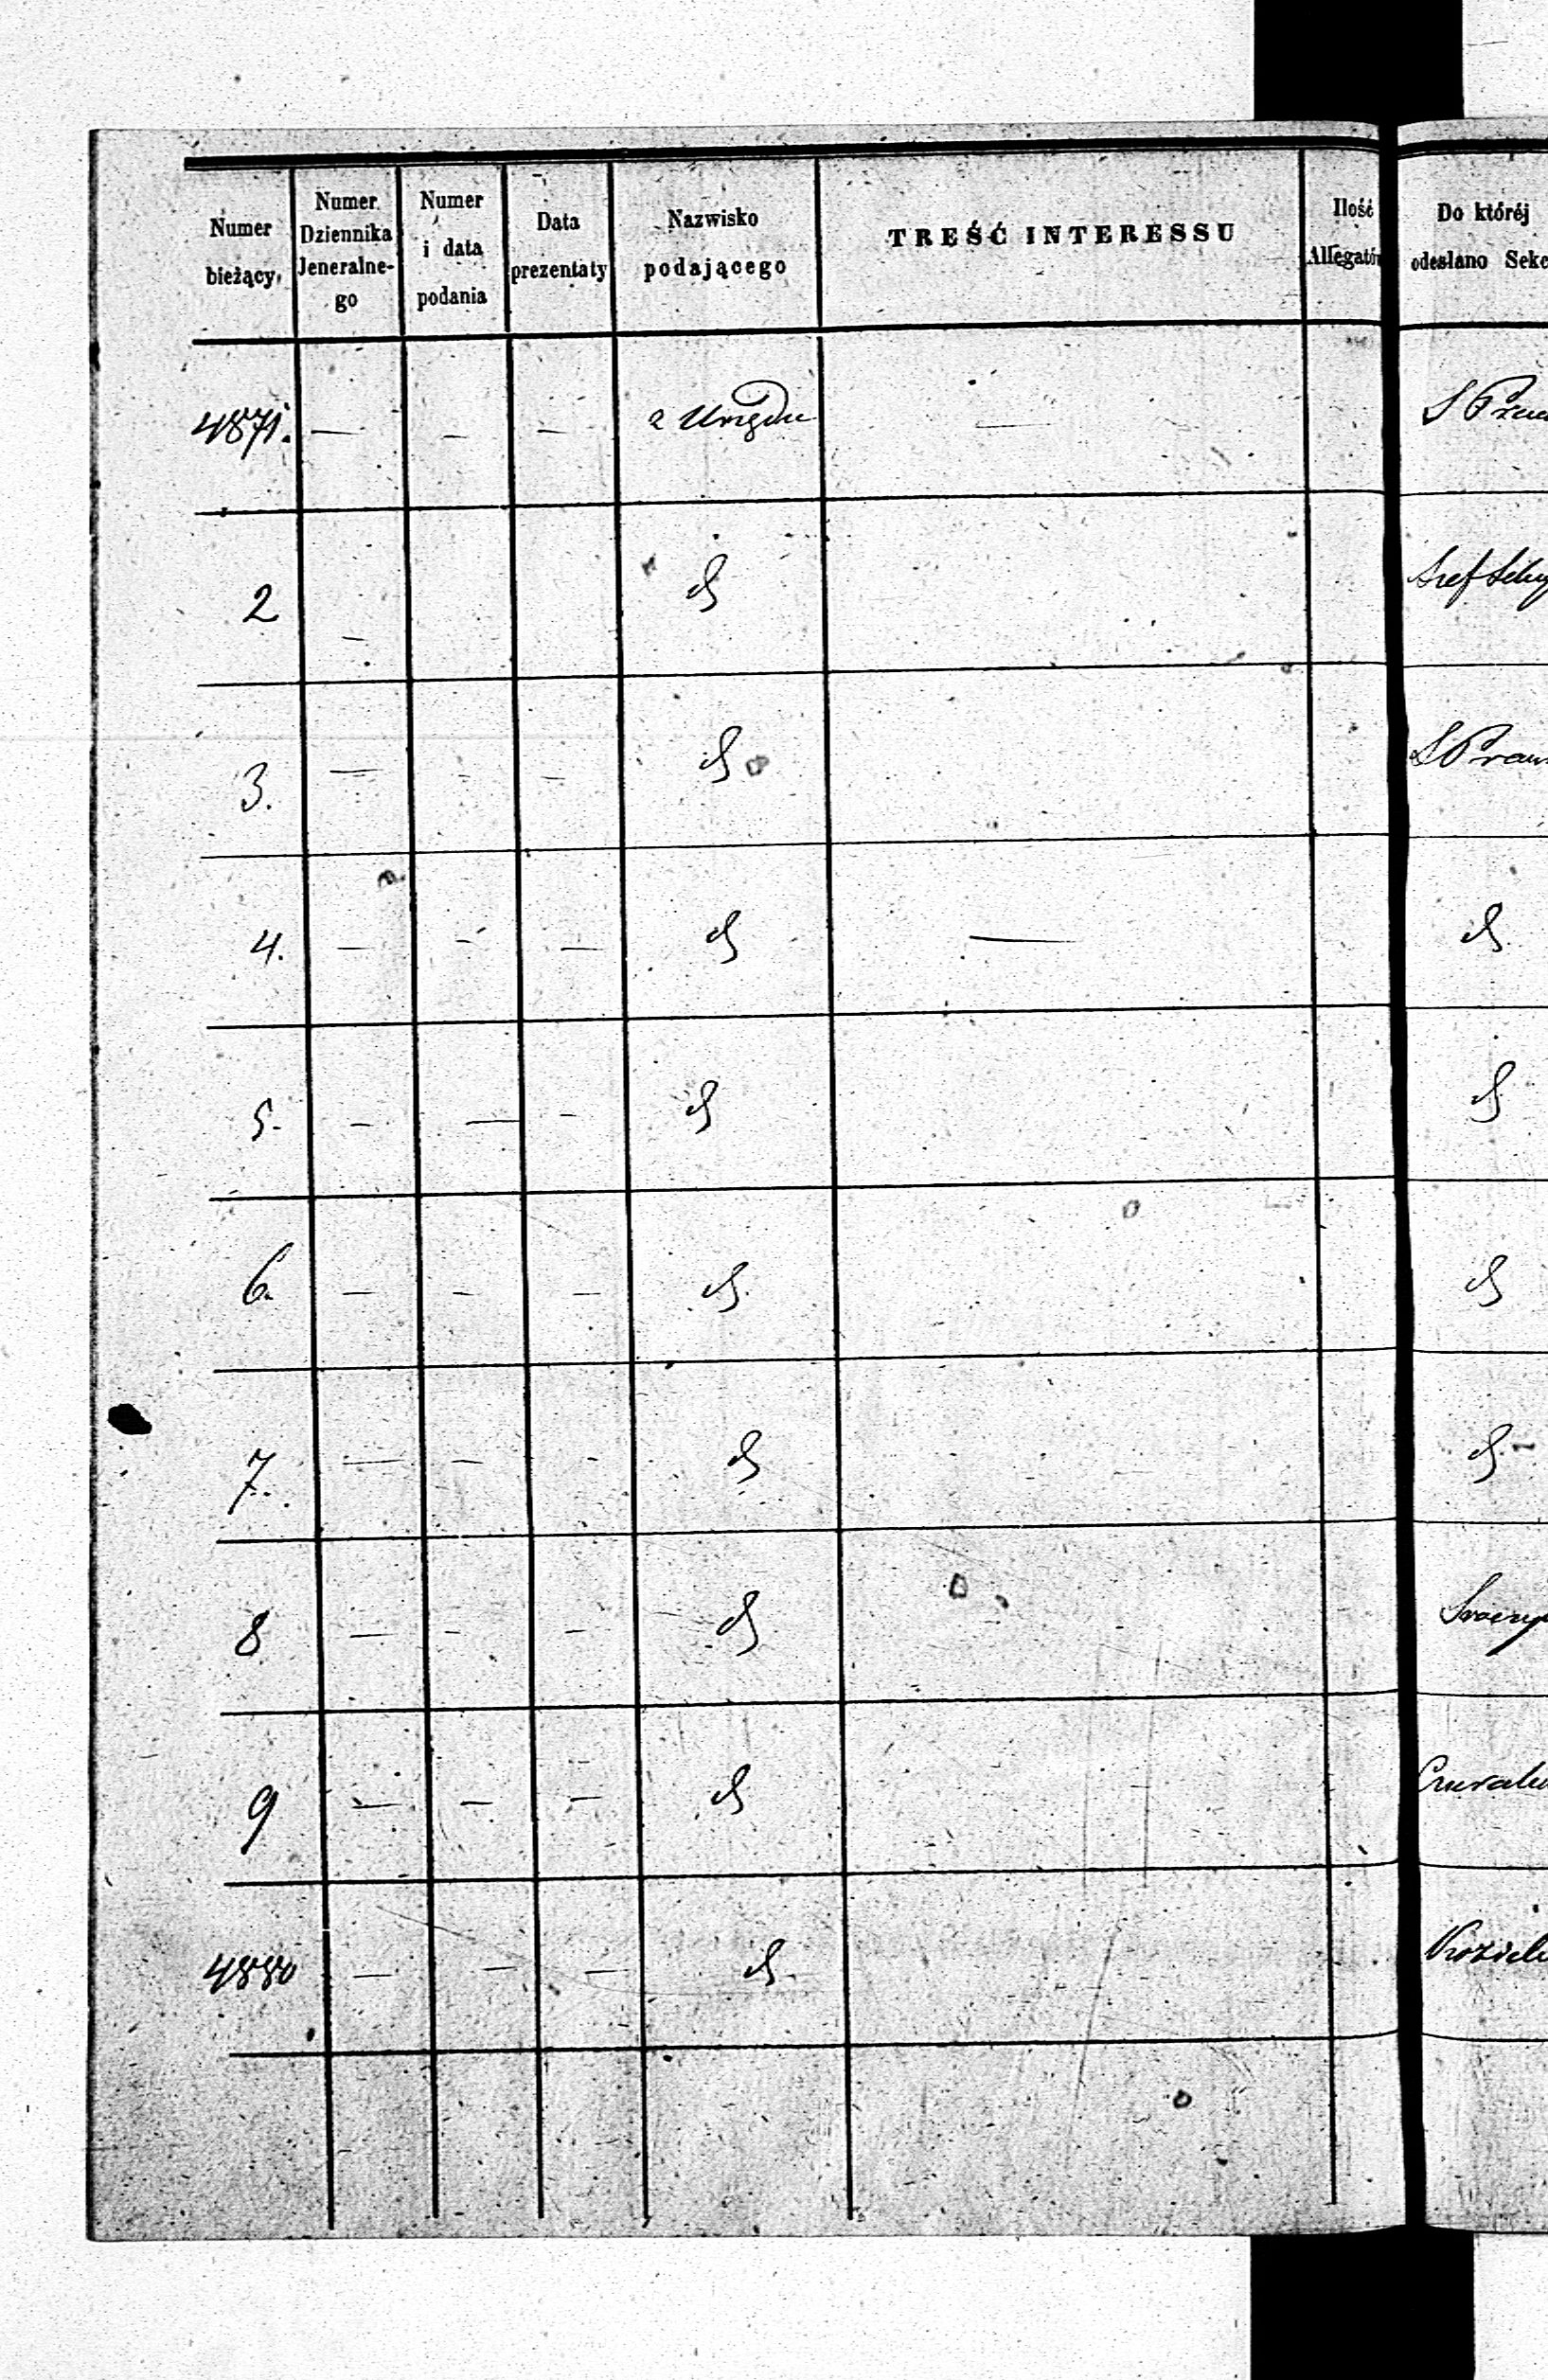 Numer bieżący.
Numer Dziennika Jeneralne-
go
Numer i data podania
Data prezentaty
Nazwisko podającego
TREŚĆ INTERESSU
Ilość Allegatów
Do któréj odesłano Sekc
4871. — — — z Urzędu —
2 — d
3. — — — d
4. — — — d — d
5. — — — d d
6. — — — d d
7. — — — d d
8 — — — d
9 — — — d
4880 — — — d